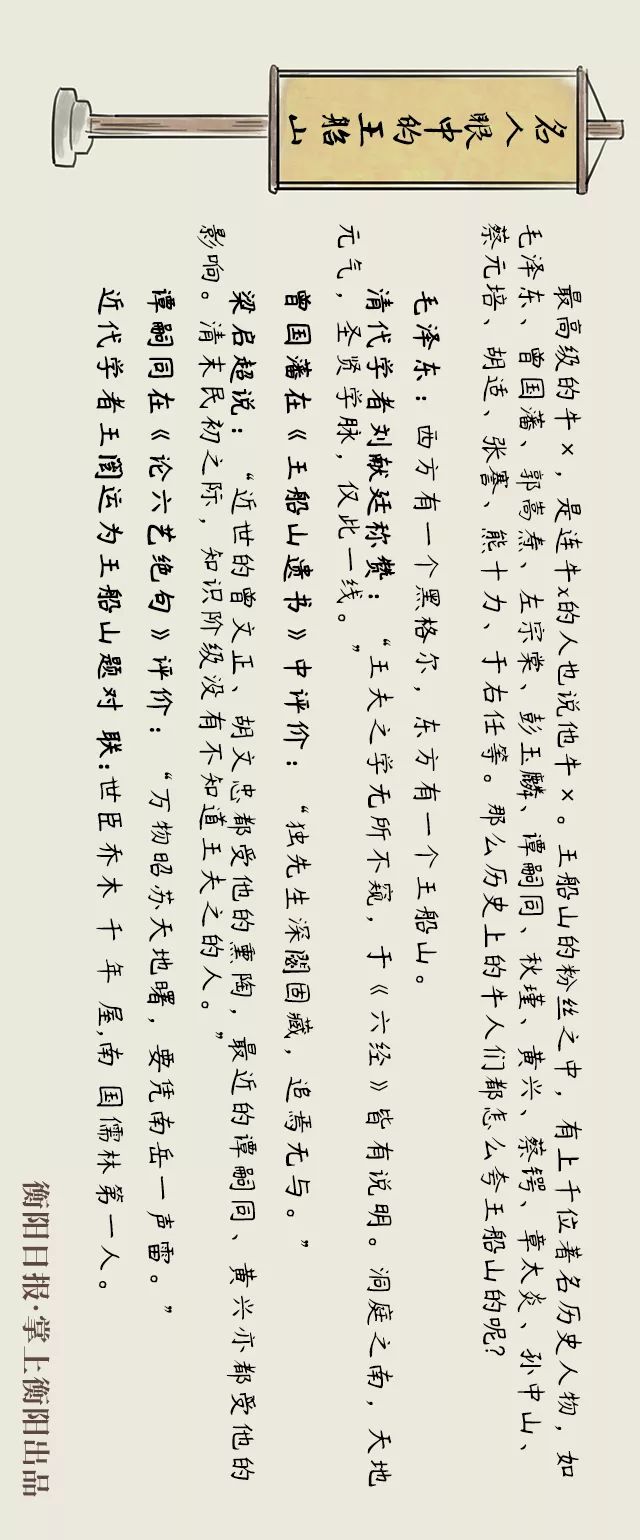 名人眼中的王船山
最高级的牛×，是连牛x的人也说他牛×。王船山的粉丝之中，有上千位著名历史人物，如
毛泽东、曾国藩、郭嵩焘、左宗棠、彭玉麟、谭嗣同、秋瑾、黄兴、蔡锷、章太炎、孙中山、
蔡元培、胡适、张謇、熊十力、于右任等。那么历史上的牛人们都怎么夸王船山的呢？
毛泽东：西方有一个黑格尔，东方有一个王船山。
清代学者刘献廷称赞：“王夫之学无所不窥，于《六经》皆有说明。洞庭之南，天地
元气，圣贤学脉，仅此一线。”
曾国藩在《王船山遗书》中评价：“独先生深閟固藏，追焉无与。”
梁启超说：“近世的曾文正、胡文忠都受他的熏陶，最近的谭嗣同、黄兴亦都受他的
影响。清末民初之际，知识阶级没有不知道王夫之的人。”
谭嗣同在《论六艺绝句》评价：“万物昭苏天地曙，要凭南岳一声雷。”
近代学者王闿运为王船山题对联：世臣乔木千年屋，南国儒林第一人。
衡阳日报·掌上衡阳出品